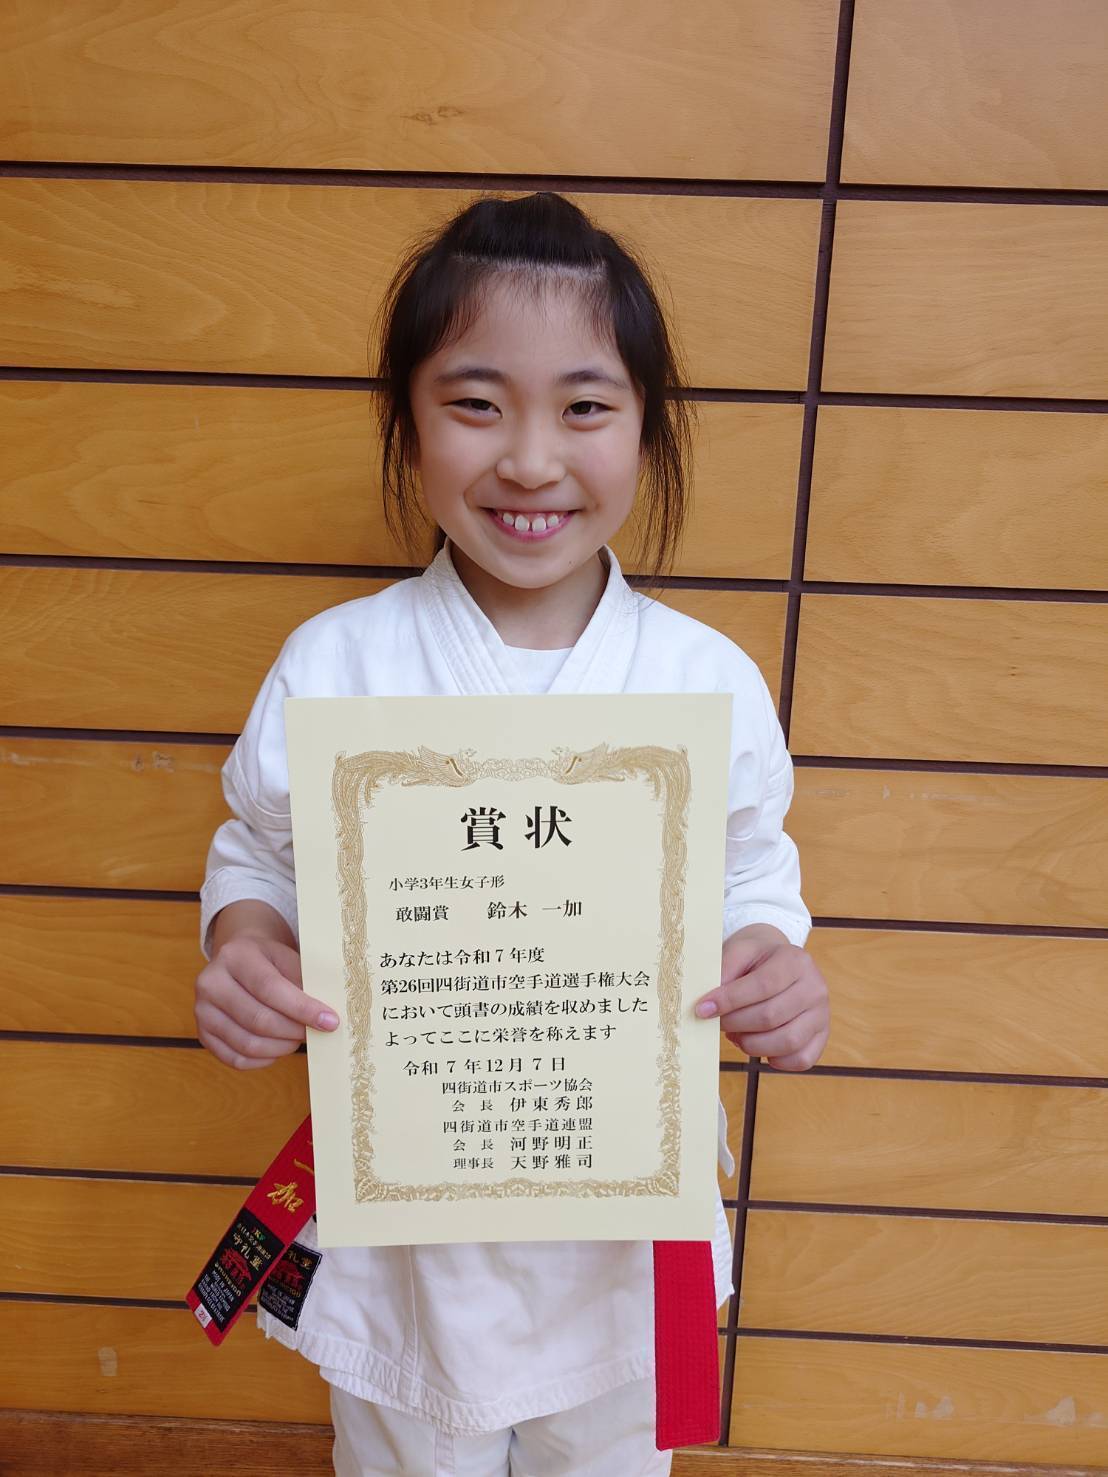 賞状
小学3年生女子形
敢闘賞 鈴木 一加
あなたは令和7年度
第26回四街道市空手道選手権大会
において頭書の成績を収めました
よってここに栄誉を称えます
令和7年12月7日
四街道市スポーツ協会
会長 伊東秀郎
四街道市空手道連盟
会長 河野明正
理事長 天野雅司
一加
守礼堂